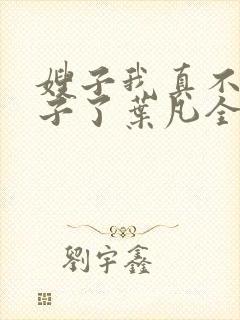 嫂子我真不
子了葉凡全
劉宇鑫